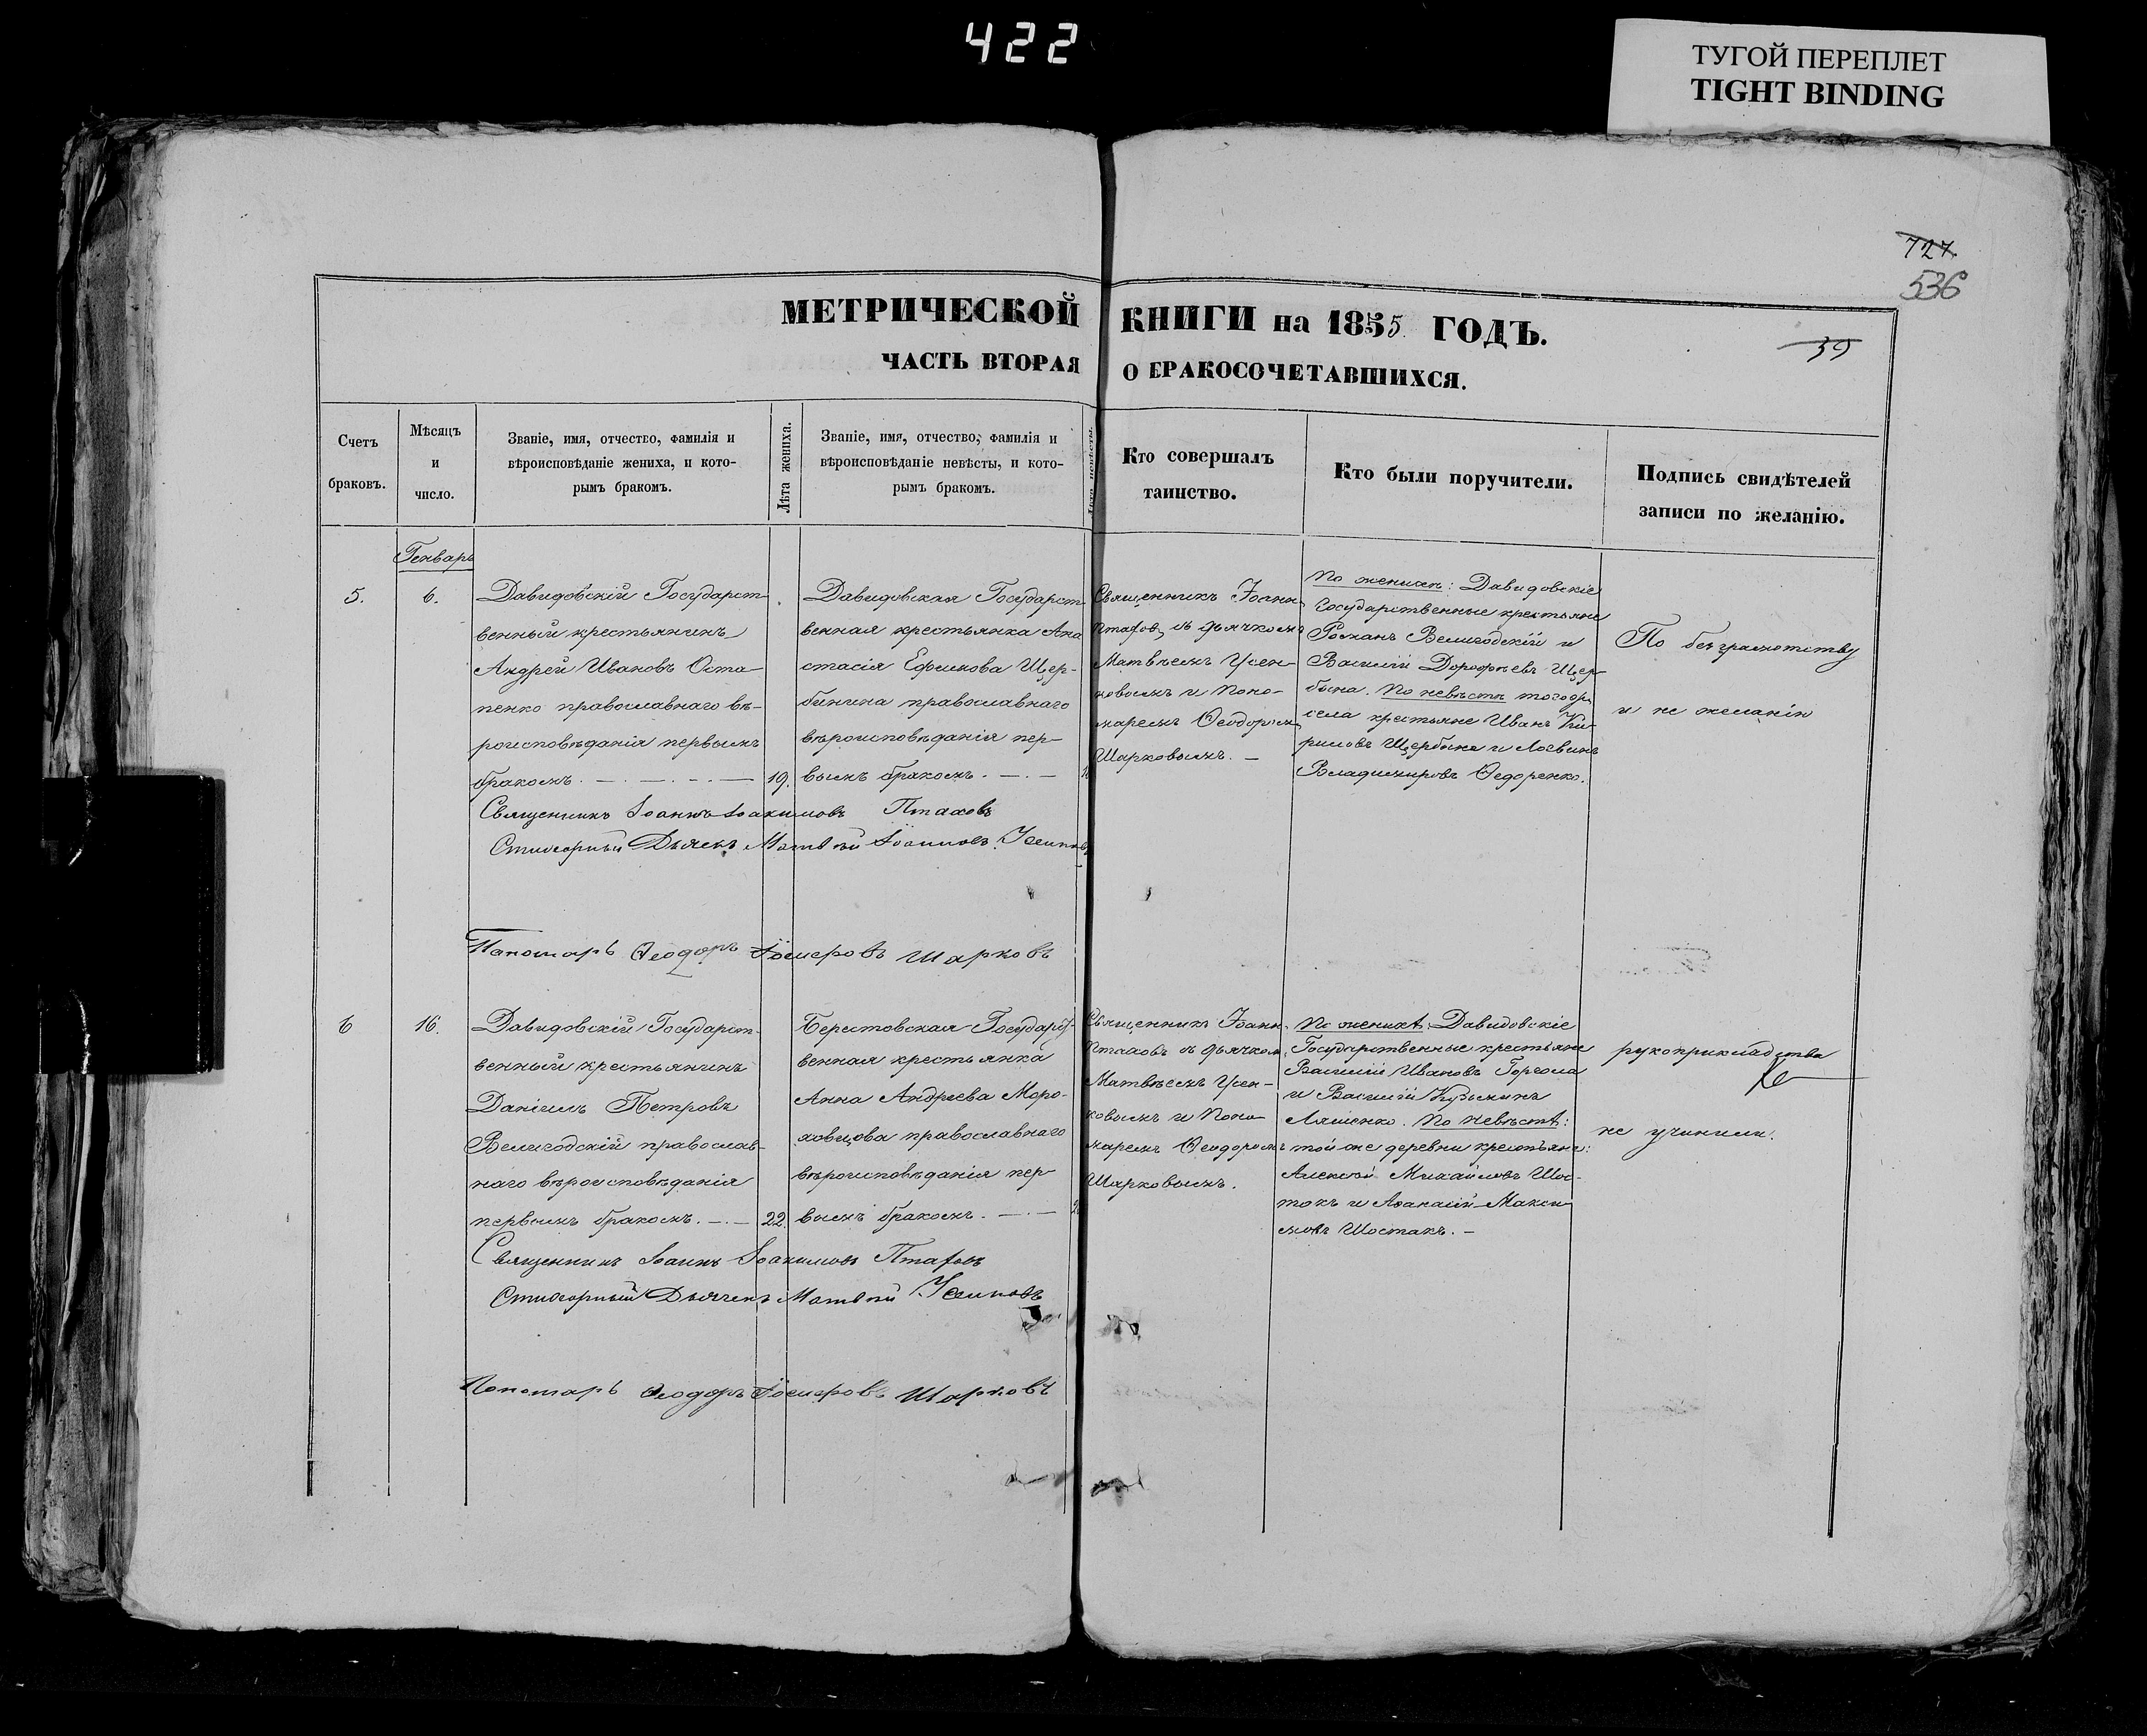 422
ТУГОЙ ПЕРЕПЛЕТ
TIGHT BINDING
727.
536
39
МЕТРИЧЕСКОЙ КНИГИ на 1855 ГОДЪ.
ЧАСТЬ ВТОРАЯ О БРАКОСОЧЕТАВШИХСЯ.
Счетъ
браковъ.
Мѣсяцъ
и
число.
Званіе, имя, отчество, фамилія и
вѣроисповѣданіе жениха, и кото-
рымъ бракомъ.
Лѣта жениха.
Званіе, имя, отчество, фамилія и
вѣроисповѣданіе невѣсты, и кото-
рымъ бракомъ.
Лѣта невѣсты.
Кто совершалъ
таинство.
Кто были поручители.
Подпись свидѣтелей
записи по желанію.
Генварь
5.
6.
Давидовскій Государст
венный крестьянинъ
Андрей Ивановъ Оста
пенко православнаго вѣ-
роисповѣданія первымъ
бракомъ.
19.
Давидовская Государст
венная крестьянка Ана
стасія Ефимова Щер-
бинина православнаго
вѣроисповѣданія пер-
вымъ бракомъ.
Священникъ Іоанн
Птаховъ съ дьячкомъ
Матвѣемъ Усен-
ковымъ и Поно-
маремъ Ѳеодоромъ
Шарковымъ.
По женихѣ: Давидовскіе
Государственные крестьяне
Романъ Велигодскій и
Василій Дорофѣевъ Щер
бина. По невѣстѣ того же
села крестьяне Иванъ Ки-
риловъ Щербина и Логвинъ
Владимировъ Ѳедоренко.
По безграмотству
и не желанію
Священникъ Іоаннъ Іоакимовъ Птаховъ
Стихарный Дьячекъ Матвѣй Іоанновъ Усенковъ
Пономарь Ѳеодоръ Шарковъ
6
16.
Давидовскій Государст-
венный крестьянинъ
Даніилъ Петровъ
Велигодскій православ-
наго вѣроисповѣданія
первымъ бракомъ.
22.
Берестовская Государст-
венная крестьянка
Анна Андреева Моро-
ховцова православнаго
вѣроисповѣданія пер
вымъ бракомъ.
Священникъ Іоанн
Птаховъ съ дьячкомъ
Матвѣемъ Усен-
ковымъ и Поно
маремъ Ѳеодоромъ
Шарковымъ.
По женихѣ: Давидовскіе
Государственные крестьяне
Василій Ивановъ
и Василій Кузьминъ
Ляшенко. По невѣстѣ:
той же деревни крестьяне:
Алексѣй Михайловъ Шос-
такъ и Аѳанасій Макси
мовъ Шостакъ.
рукоприкладства
не учинили.
Священникъ Іоаннъ Іоакимовъ Птаховъ
Стихарный Дьячекъ Матвѣй Усенковъ
Пономарь Ѳеодоръ Шарковъ